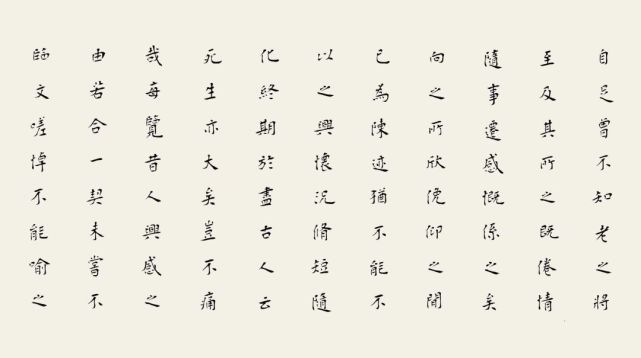 自足曾不知老之將
至及其所之既倦情
隨事遷感慨係之矣
向之所欣俛仰之間
已為陳迹猶不能不
以之興懷況脩短隨
化終期於盡古人云
死生亦大矣豈不痛
哉每覽昔人興感之
由若合一契未嘗不
臨文嗟悼不能喻之